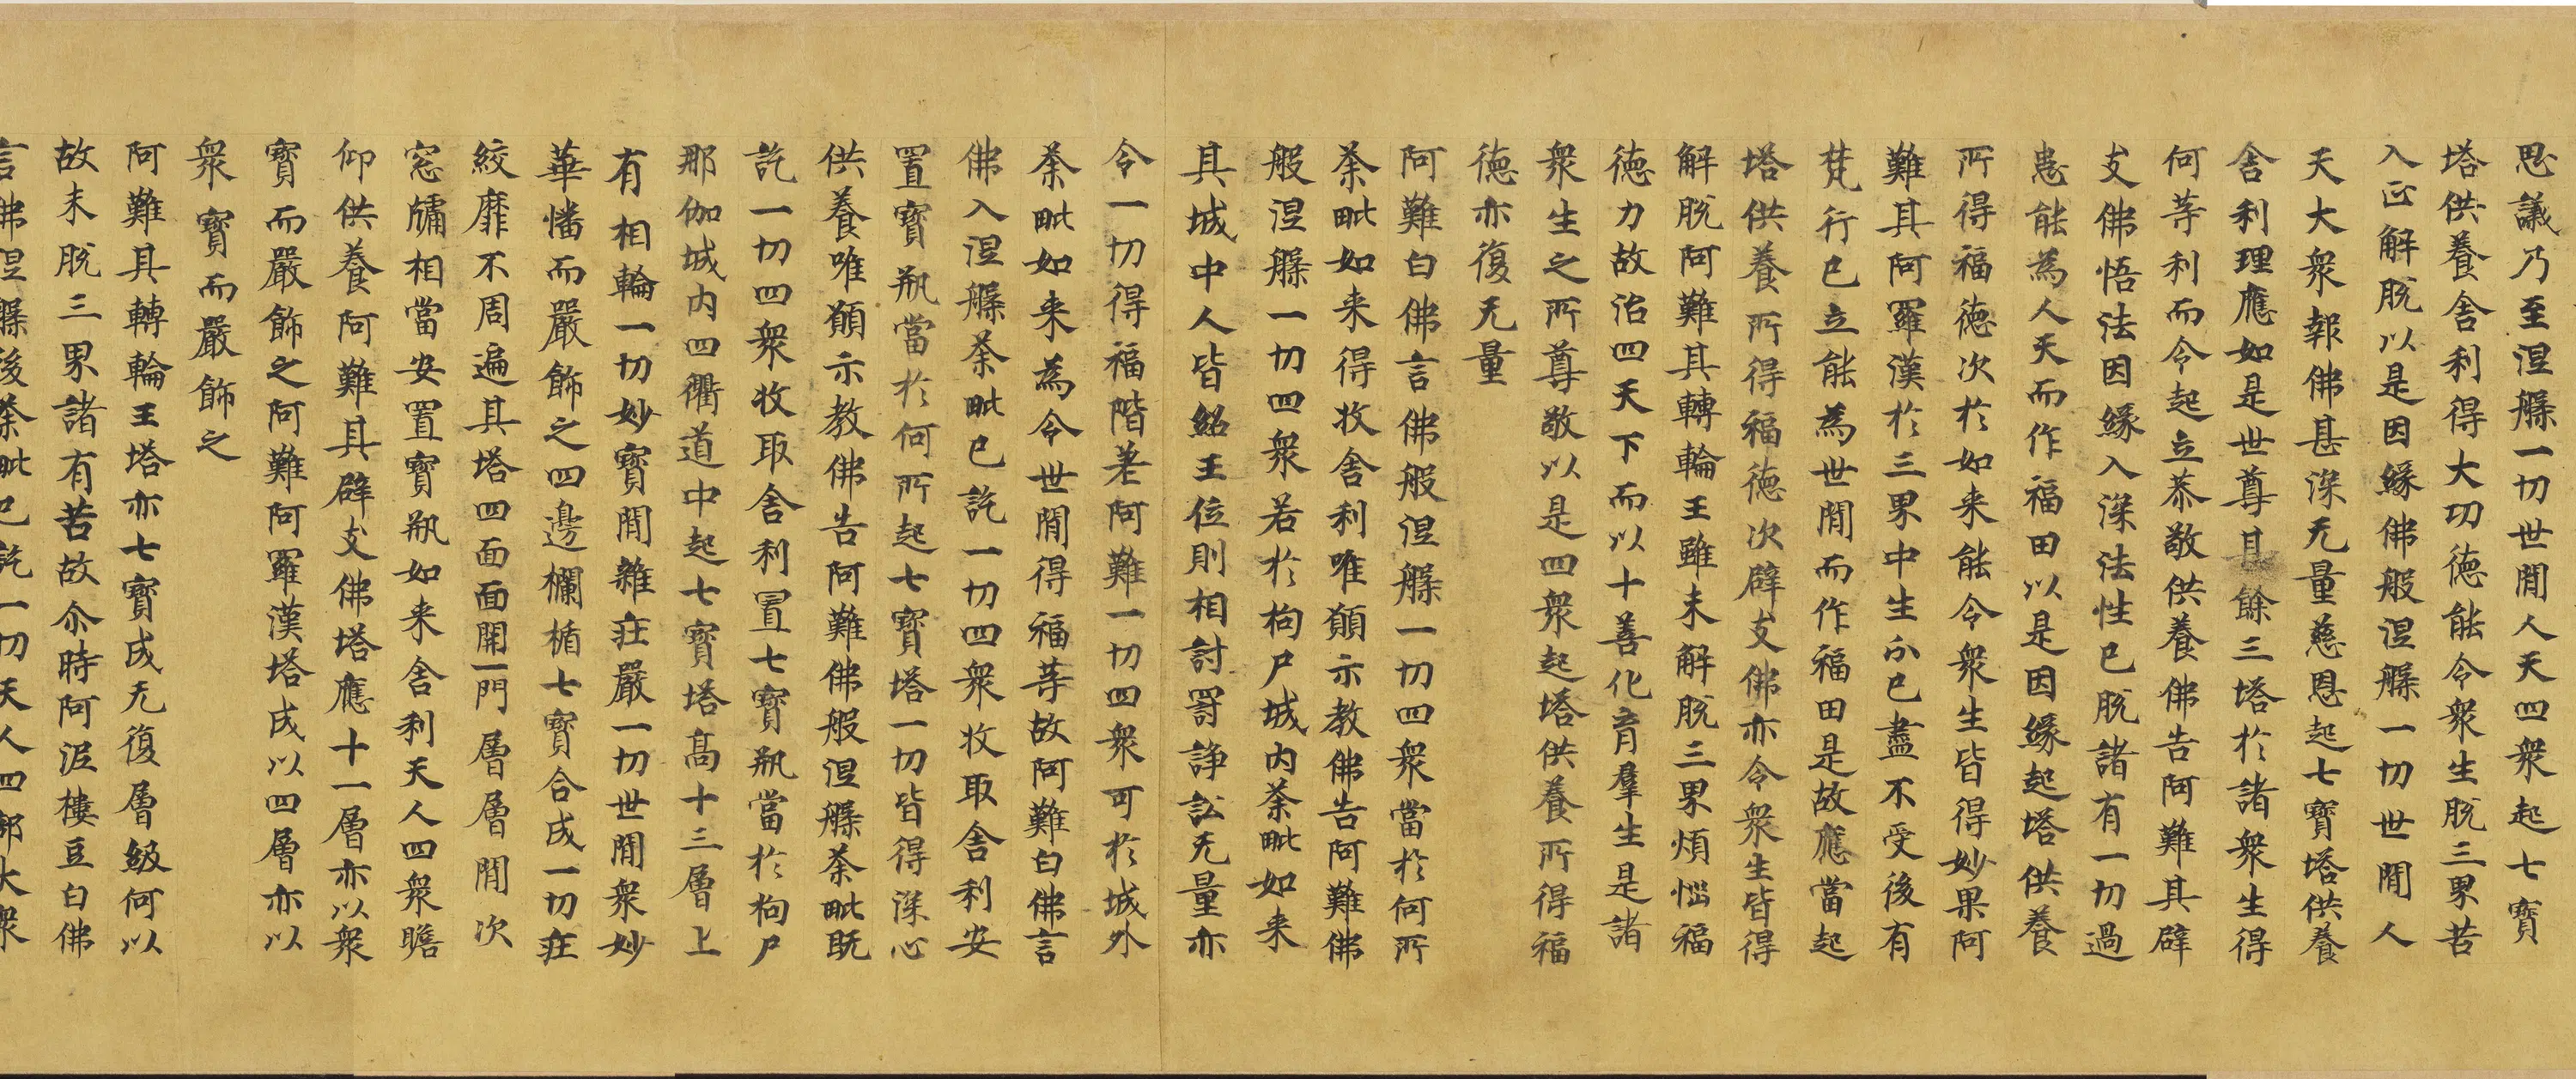 思議乃至涅槃一切世閒人天四衆起七寶
塔供養舍利得大功德能令衆生脫三界苦
入正解脫以是因緣佛般涅槃一切世閒人
天大衆報佛甚深无量慈恩起七寶塔供養
舍利理應如是世尊其餘三塔於諸衆生得
何等利而令起立恭敬供養佛告阿難其辟
支佛悟法因緣入深法性已脫諸有一切過
患能為人天而作福田以是因緣起塔供養
所得福德次於如来能令衆生皆得妙果阿
難其阿羅漢於三界中生分已盡不受後有
梵行已立能為世閒而作福田是故應當起
塔供養所得福德次辟支佛亦令衆生皆得
解脫阿難其轉輪王雖未解脫三界煩惱福
德力故治四天下而以十善化育羣生是諸
衆生之所尊敬以是四衆起塔供養所得福
德亦復无量
阿難白佛言佛般涅槃一切四衆當於何所
荼毗如来得收舍利唯願示教佛告阿難佛
般涅槃一切四衆若於拘尸城内荼毗如来
其城中人皆紹王位則相討罸諍訟无量亦
令一切得福階差阿難一切四衆可於城外
荼毗如来為令世閒得福等故阿難白佛言
佛入涅槃荼毗已訖一切四衆收取舍利安
置寶瓶當於何所起七寶塔一切皆得深心
供養唯願示教佛告阿難佛般涅槃荼毗既
訖一切四衆收取舍利置七寶瓶當於拘尸
那伽城内四衢道中起七寶塔高十三層上
有相輪一切妙寶閒雜莊嚴一切世閒衆妙
華幡而嚴飾之四邊欄楯七寶合成一切莊
絞靡不周遍其塔四面面開一門層層閒次
窓牖相當安置寶瓶如来舍利天人四衆瞻
仰供養阿難其辟支佛塔應十一層亦以衆
寶而嚴飾之阿難阿羅漢塔成以四層亦以
衆寶而嚴飾之
阿難其轉輪王塔亦七寶成无復層級何以
故未脫三界諸有苦故尒時阿泥樓豆白佛
言佛涅槃後荼毗已訖一切天人四部大衆